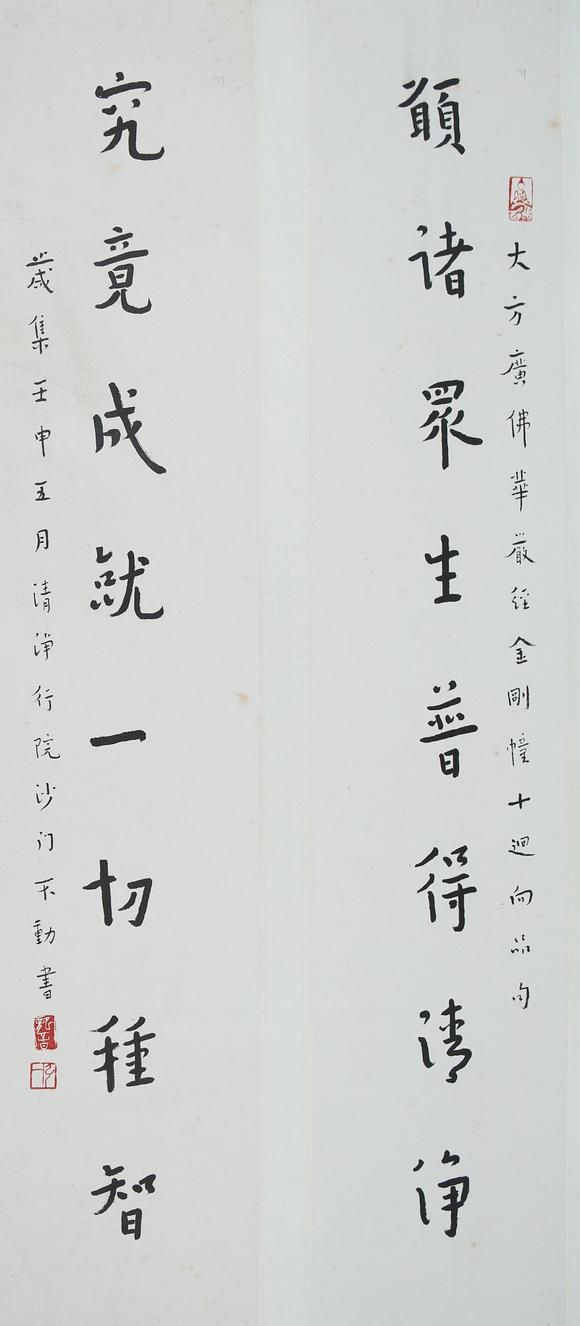 大方廣佛華嚴經金剛幢十迴向品句
願諸眾生普得清淨
究竟成就一切種智
歲集壬申五月清淨行院沙门不動書
弘一